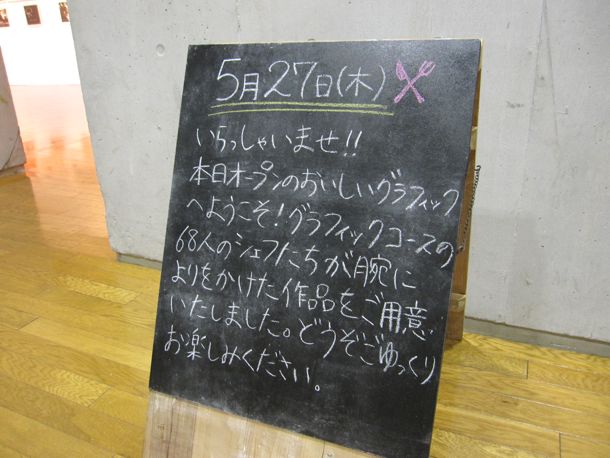 5月27日(木)
いらっしゃいませ!!
本日オープンのおいしいグラフィック
へようこそ!グラフィックコースの
68人のシェフたちが腕に
よりをかけた作品をご用意
いたしました。どうぞごゆっくり
お楽しみください。